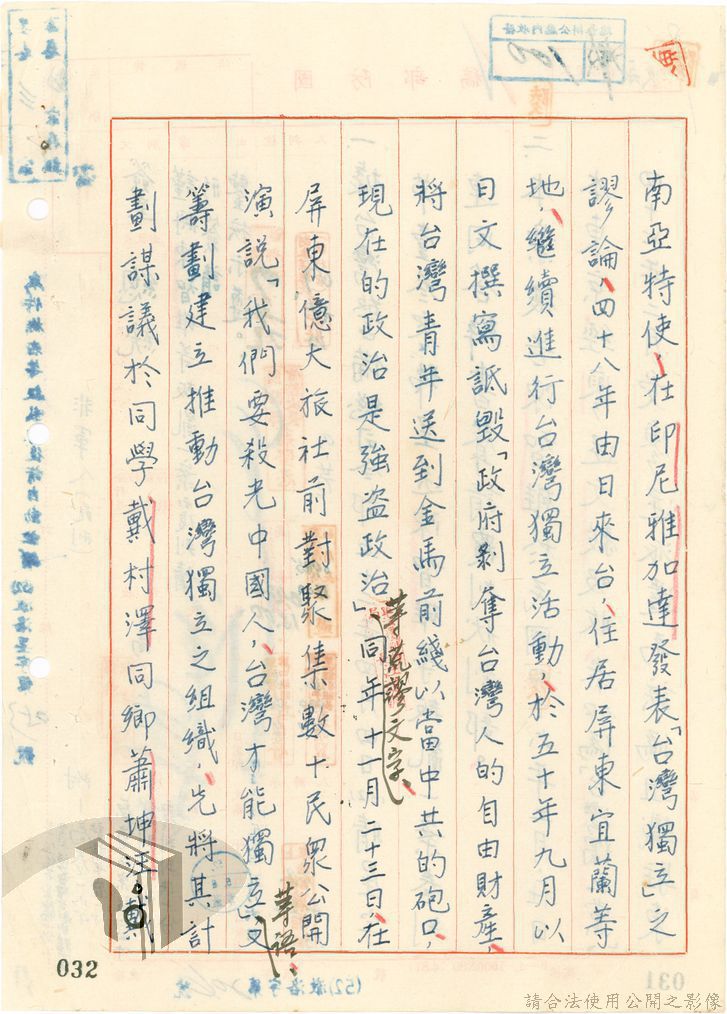 南亞特使,在印尼雅加達發表「台灣獨立」之
謬論,四十八年由日來台,住居屏東宜蘭等
地,繼續進行台灣獨立活動,於五十年九月以
日文撰寫詆毀「政府剝奪台灣人的自由財產,
將台灣青年送到金馬前綫以當中共的砲口,
現在的政治是強盜政治」等荒謬文字、同年十一月二十三日,在
屏東億大旅社前對聚集數十民眾公開
演說「我們要殺光中國人,台灣才能獨立」等語、又
籌劃建立推動台灣獨立之組織,先將其計
劃謀議於同學戴村澤同鄉蕭坤汪。戴
032
請合法使用公開之影像